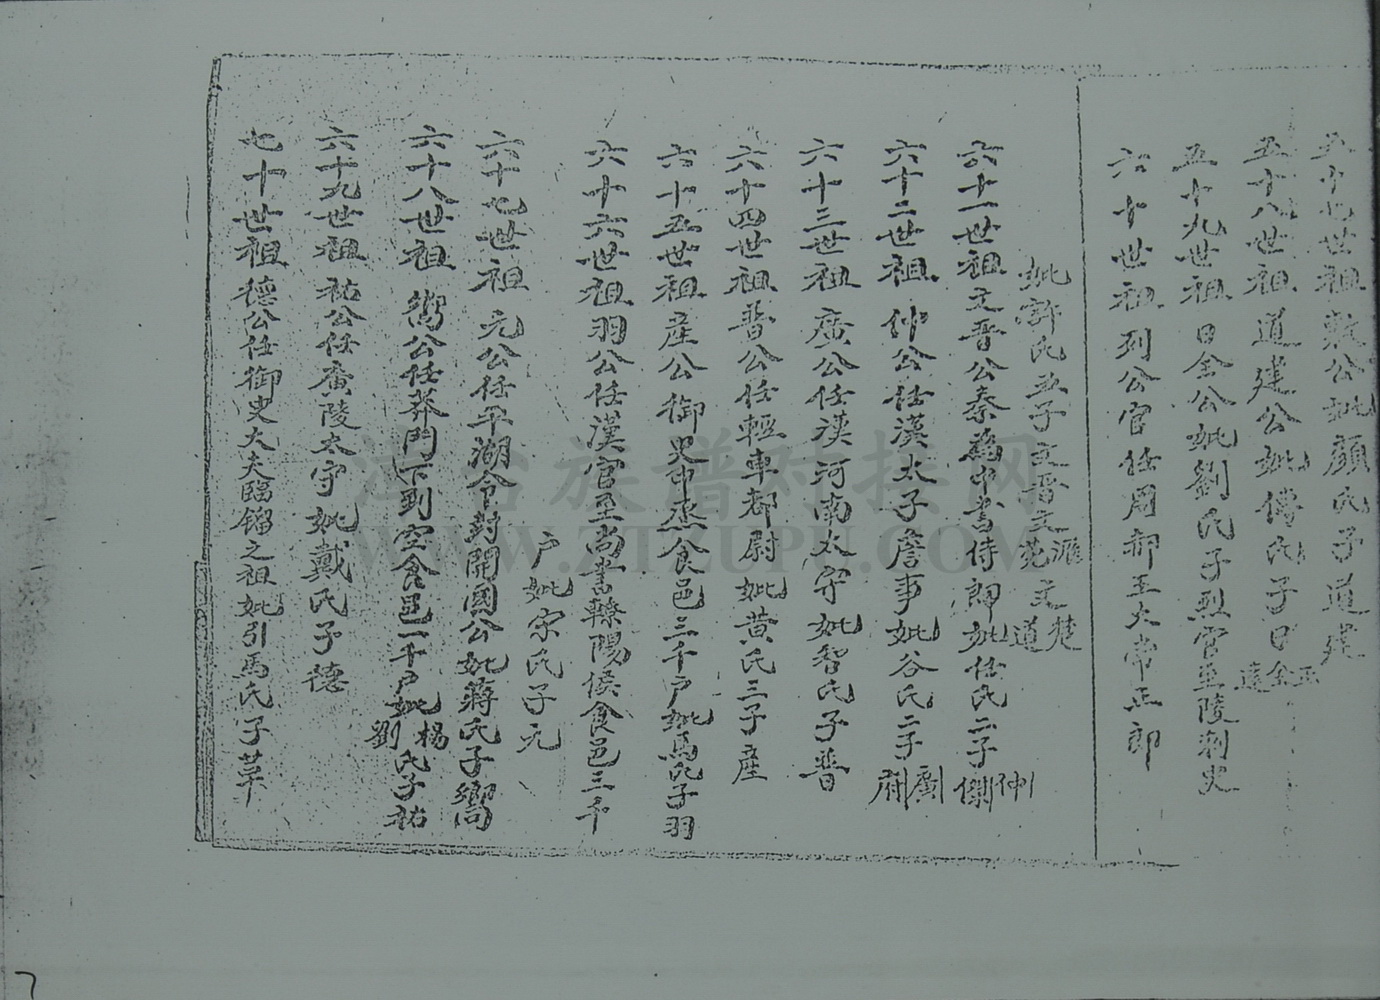 五十七世祖數公妣顏氏子道建
五十八世祖道建公妣傅氏子日金 正達
五十九世祖日金公妣劉氏子烈官並陵刺史
六十世祖列公官任周部王大常正郎
妣許氏五子文晋文滙文楚文苑道
六十一世祖文晋公秦為中書侍郎妣任氏二子仲傑
六十二世祖仲公任漢太子詹事妣谷氏二子廣府
六十三世祖廣公任漢河南太守妣智氏子普
六十四世祖普公任輕車都尉妣黄氏三子産
六十五世祖産公御史中丞食邑三千户妣馬氏子羽
六十六世祖羽公任漢官至尚書轑陽侯食邑三千
户妣宗氏子元
六十七世祖元公任平湖令封開國公妣蔣氏子嚮
六十八世祖嚮公任莽門下到空食邑一千户妣楊劉氏子祐
六十九世祖祐公任廣陵太守妣戴氏子德
七十世祖德公任御史大夫臨𨫼之祖妣引馬氏子草
湖台族譜对接网
WWW.ZTZUPU.COM
7